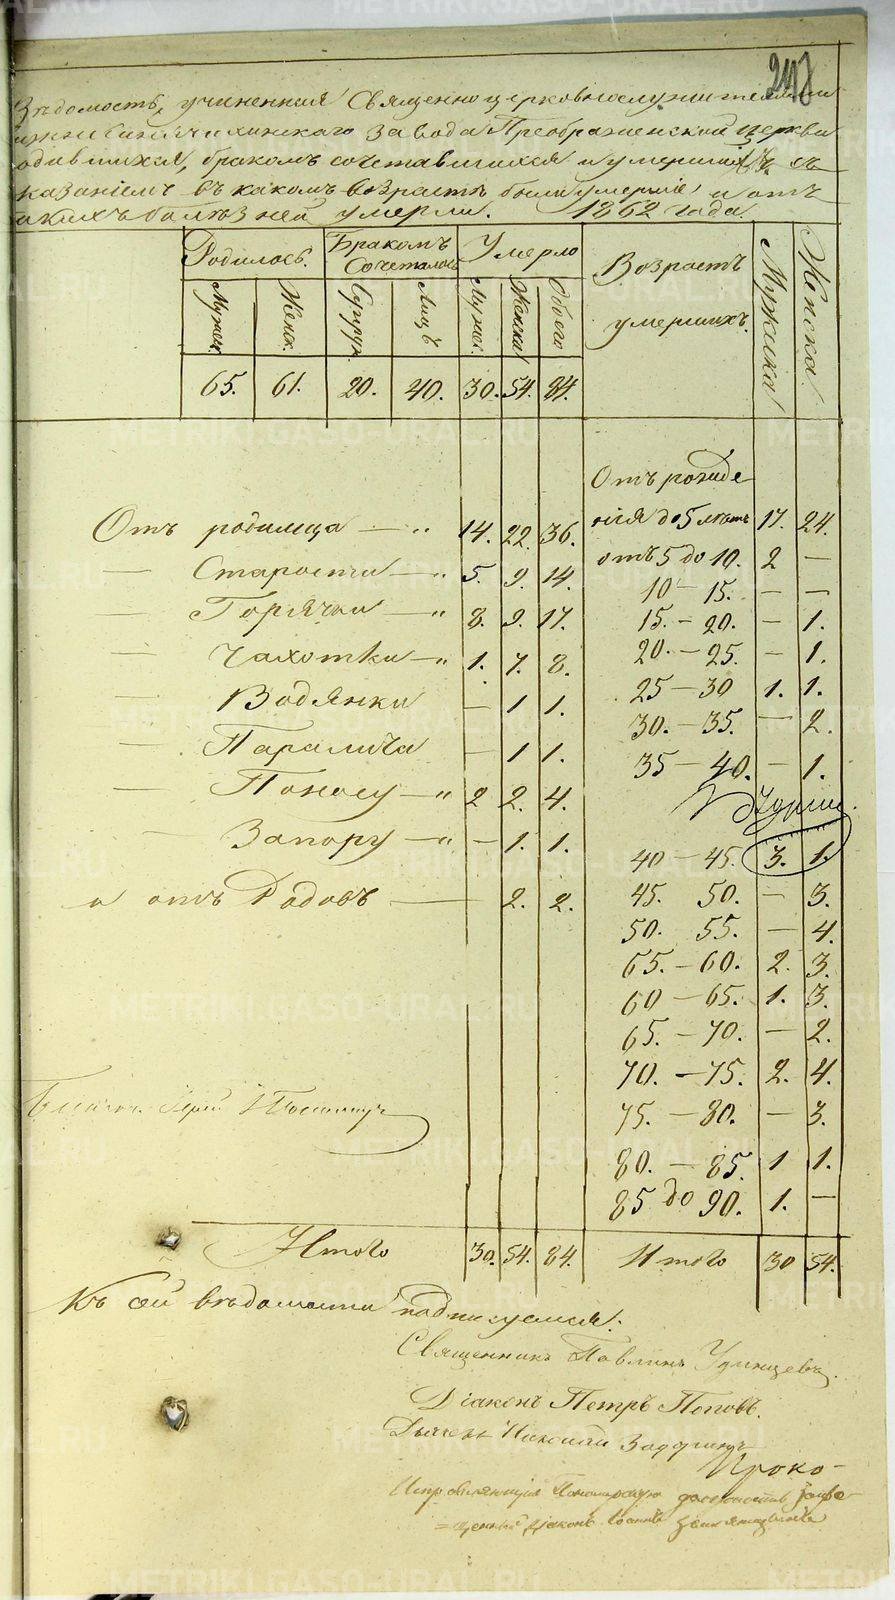 248
Вѣдомость, учиненная Священноцерковнослужителями
завода Преображенской церкви
одившихся, бракомъ сочетавшихся и умершихъ, съ
казаніемъ въ какомъ возрастѣ были умершіе, и отъ
акихъ болѣзней умерли. 1862 года.
Родилось. Бракомъ Сочеталось Умерло Возрастъ умершихъ. Мужска Женска
Мужес. Женск. Супруж. Лицъ Мужес. Женска Обоего
65. 61. 20. 40. 30. 54. 84.
Отъ рожде
Отъ родимца — „ 14. 22. 36. нія до 5 лѣтъ 17. 24.
— Старости — „ 5. 9. 14. отъ 5 до 10. 2 —
10 — 15. — —
— Горячки — „ 8. 9. 17. 15. — 20. — 1.
— Чахотки — „ 1. 7. 8. 20. — 25. — 1.
— Водянки — 1 1. 25 — 30 1. 1.
30. — 35. — 2.
— Паралича — 1 1. 35 — 40. — 1.
— Поносу — „ 2 2. 4.
— Запору — „ — 1. 1. 40 — 45. 3. 1.
и отъ Родовъ — 2. 2. 45. 50. — 3.
50. 55. — 4.
65. — 60. 2. 3.
60 — 65. 1. 3.
65. — 70. — 2.
70. — 75. 2. 4.
75. — 80. — 3.
80. — 85. 1 1.
85 до 90. 1. —
Итого 30. 54. 84. Итого 30 54.
Къ сей вѣдомости подписуемся:
Священникъ Павлинъ
Діаконъ Петръ Поповъ.
Дьячекъ Николай
Исправляющій Пономарскую должность
Діаконъ
METRIKI.GASO-URAL.RU